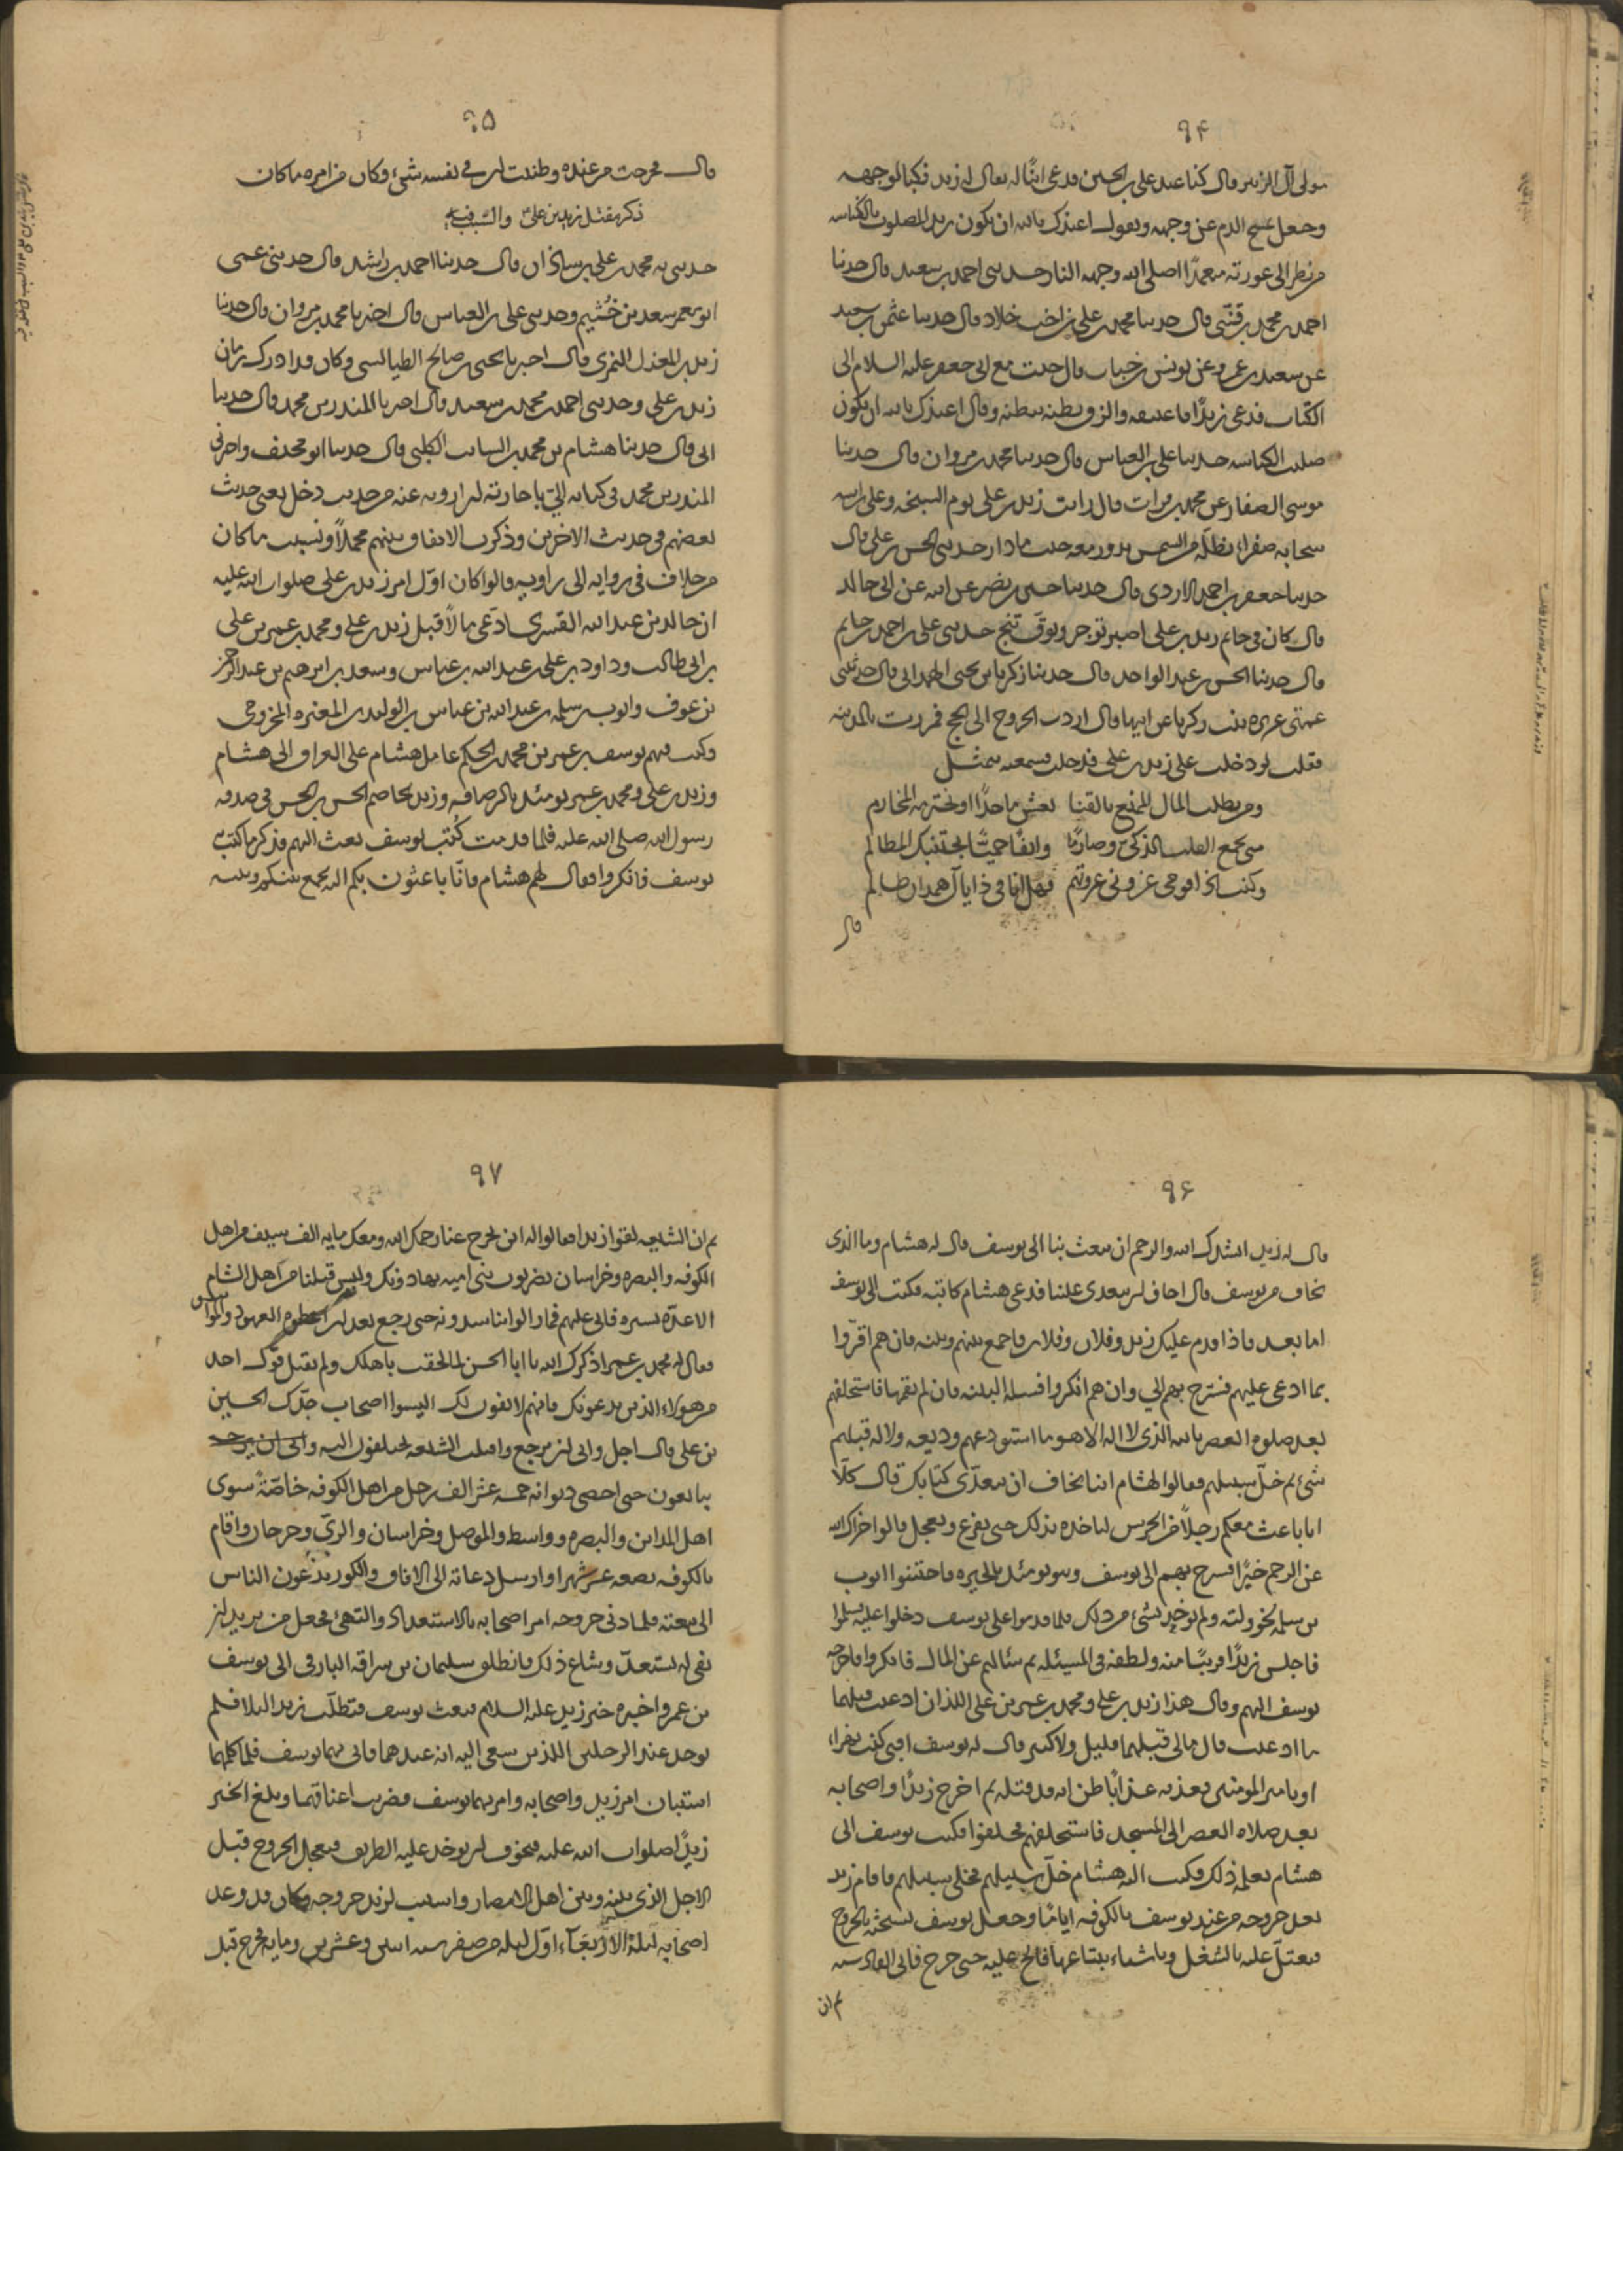 ۹۴
مولى آل الزبير قال كنا عند على بن الحسين فدعى ابنًا له يقال له زيد فكبا لوجهه
وجعل يمسح الدم عن وجهه ويقول اعيذك بالله ان تكون زيد المصلوب بالكناسه
من نظر الى عورته متعمدًا اصلى الله وجهه النار حدثنى احمد بن سعيد قال حدثنا
احمد بن محمد بن قنّى قال حدثنا محمد بن على بن اخت خلاد قال حدثنا عثمن بن سعيد
عن سعيد بن عمرو عن يونس بن خباب قال جئت مع ابى جعفر عليه السلام الى
الكتّاب فدعى زيدًا فاعتنقه والزق بطنه ببطنه وقال اعيذك بالله ان تكون
صليب الكناسه حدثنا على بن العباس قال حدثنا محمد بن مروان قال حدثنا
موسى الصفار عن محمد بن فرات قال رايت زيد بن على يوم السبخه وعلى راسه
سحابه صفراء تظلّه من الشمس تدور معه حيث ما دار حدثنى الحسن بن على قال
حدثنا جعفر بن احمد الازدى قال حدثنا حسين بن نصر عن ابيه عن ابى خالد
قال كان فى خاتم زيد بن على اصبر توجر وتوقّ تنج حدثنى على بن احمد بن حاتم
قال حدثنا الحسن بن عبد الواحد قال حدثنا زكريا بن يحيى الهمدانى قال حدثتنى
عمتى عزيزه بنت زكريا عن ابيها قال اردت الخروج الى الحج فمررت بالمدينه
فقلت لو دخلت على زيد بن على فدخلت فسمعته يتمثل
ومن يطلب المال الممنع بالقنا يعش ماجدًا او تخترمه المخارم
متى تجمع القلب الذكىّ وصارمًا وانفًا حميًّا تجتنبك المظالم
وكنت اذا قوم غزونى غزوتهم فهل انا فى ذا يا آل همدان ظالم
قال
۹۵
قال فخرجت من عنده وظننت ان فى نفسه شئ وكان من امره ما كان
ذكر مقتل زيد بن علىّ والسّبب فيه
حدثنى به محمد بن على بن شاذان قال حدثنا احمد بن راشد قال حدثنى عمى
ابو معمر سعيد بن خُثيم وحدثنى على بن العباس قال اخبرنا محمد بن مروان قال حدثنا
زيد بن المعذل النمرى قال اخبرنا يحيى بن صالح الطيالسى وكان قد ادرك زمان
زيد بن على وحدثنى احمد بن محمد بن سعيد قال اخبرنا المنذر بن محمد قال حدثنا
ابى قال حدثنا هشام بن محمد بن السائب الكلبى قال حدثنا ابو مخنف واخبرنى
المنذر بن محمد فى كتابه الىّ باجازته ان ارويه عنه من حيث دخل يعنى حديث
بعضهم فى حديث الاخرين وذكرت الاتفاق بينهم مجملًا ونسبت ما كان
من خلاف فى روايه الى راويه قالوا كان اوّل امر زيد بن على صلوات الله عليه
ان خالد بن عبد الله القسرى ادّعى مالًا قبل زيد بن على ومحمد بن عمر بن على
بن ابى طالب وداود بن على بن عبد الله بن عباس وسعد بن ابرهيم بن عبد الرحمن
بن عوف وايوب بن سلمه بن عبد الله بن عباس بن الوليد بن المغيره المخزومى
وكتب فيهم يوسف بن عمر بن محمد بن الحكم عامل هشام على العراق الى هشام
وزيد بن على ومحمد بن عمر يومئذ بالرصافه وزيد يخاصم الحسن بن الحسن فى صدقه
رسول الله صلى الله عليه فلما قدمت كُتب يوسف بعث اليهم فذكر ما كتب به
يوسف فانكروا فقال لهم هشام فانّا باعثون بكم اليه يجمع بينكم وبينه
۹۶
قال له زيد انشدك الله والرحم ان تبعث بنا الى يوسف قال له هشام وما الذى
تخاف من يوسف قال اخاف ان يتعدى علينا فدعى هشام كاتبه فكتب الى يوسف
اما بعد فاذا قدم عليك زيد وفلان وفلان فاجمع بينهم وبينه فان هم اقرّوا
بما ادعى عليهم فسّرح بهم الي وان هم انكروا فسله البينه فان لم يقمها فاستحلفهم
بعد صلوه العصر بالله الذى لا اله الا هو ما استودعهم وديعه ولا له قبلهم
شئ ثم خلّ سبيلهم فقالوا لهشام انا نخاف ان يتعدّى كتابك قال كلّا
انا باعث معكم رجلًا من الحرس ليأخذه بذلك حتى يفرغ ويعجل قالوا جزاك الله
عن الرحم خيرًا فسرح بهم الى يوسف وهو يومئذ بالحيره فاجتنبوا ايوب
بن سلمه لخؤولته ولم يوخذ بشئ من ذلك فلما قدموا على يوسف دخلوا عليه فسلموا
فاجلس زيدًا قريبًا منه ولطفه فى المسئله ثم سئالهم عن المال فانكروا فاخرجه
يوسف اليهم وقال هذا زيد بن على ومحمد بن عمر بن على اللذان ادعيت قبلهما
ما ادعيت قال مالى قبلهما قليل ولا كثير قال له يوسف افبى كنت تهزاء
او بامير المومنين فعذبه عذابًا ظن انه قد قتله ثم اخرج زيدًا واصحابه
بعد صلاه العصر الى المسجد فاستحلفهم فحلفوا فكتب يوسف الى
هشام يعلمه ذلك فكتب اليه هشام خلّ سبيلهم فخلى سبيلهم فاقام زيد
بعد خروجه من عند يوسف بالكوفه ايامًا وجعل يوسف يستحثه بالخروج
فيعتلّ عليه بالشغل وباشياء يبتاعها فالح عليه حتى خرج فاتى القادسيه
ثم ان
۹۷
ثم ان الشيعه لقوا زيدا فقالوا له اين تخرج عنا رحمك الله ومعك مايه الف سيف من اهل
الكوفه والبصره وخراسان يضربون بنى اميه بها دونك وليس قبلنا من اهل الشام
الا عدّه يسيره فابى عليهم فما زالوا يناشدونه حتى رجع بعد ان اعطوه العهود والمواثيق
فقال له محمد بن عمر اذكرك الله يا ابا الحسن لما لحقت باهلك ولم تقبل قول احد
من هؤلاء الذين يدعونك فانهم لا يفون لك اليسوا اصحاب جدّك الحسين
بن على قال اجل وابى ان يرجع واقبلت الشيعه تختلفون اليه
يبايعون حتى احصى ديوانه خمسه عشر الف رجل من اهل الكوفه خاصّةً سوى
اهل المداين والبصره وواسط والموصل وخراسان والرىّ وجرجان واقام
بالكوفه بضعه عشر شهرا وارسل دعاته الى الافاق والكور يدعون الناس
الى بيعته فلما دنى خروجه امر اصحابه بالاستعداد والتهئ فجعل من يريد ان
يفى له يستعدّ وشاع ذلك فانطلق سليمان بن سراقه البارقى الى يوسف
بن عمر واخبره خبر زيد عليه السلام فبعث يوسف فتطلّب زيدا ليلا فلم
يوجد عند الرجلين اللذين سعى اليه انه عندهما فاتى بهما يوسف فلما كلمهما
استبان امر زيد واصحابه وامر بهما يوسف فضربت اعناقهما وبلغ الخبر
زيدًا صلوات الله عليه فتخوف ان يوخذ عليه الطريق فتعجل الخروج قبل
الاجل الذى بينه وبين اهل الامصار واستتب لزيد خروجه وكان قد وعد
اصحابه ليلة الاربعآء اوّل ليله من صفر سنه اثنين وعشرين ومايه فخرج قبل